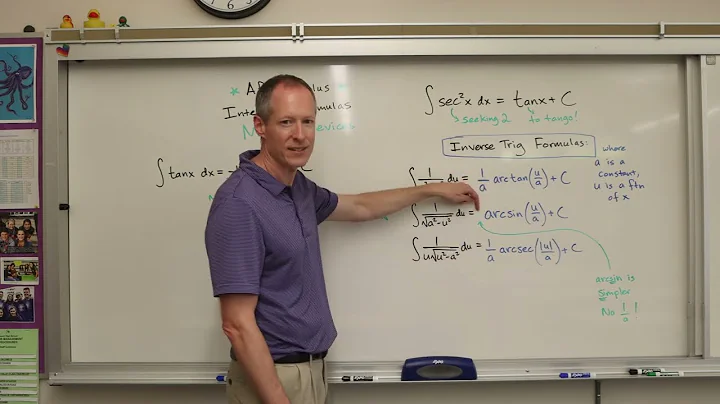 * AP Calculus
Inte mulas
M evices
∫ tanx dx = -l
∫ sec²x dx = tanx + C
seeking 2 to tango!
Inverse Trig Formulas:
where
a is a
constant,
u is a ftn
of x
∫ 1 du = 1/a arctan(u/a) + C
∫ 1/√(a²-u²) du = arcsin(u/a) + C
∫ 1/(u√(u²-a²)) du = 1/a arcsec(|u|/a) + C
arcsin is
simpler
No 1/a !
EXPO